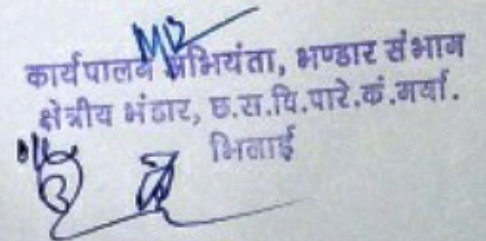 कार्यपालन अभियंता, भण्डार संभाग
क्षेत्रीय भंडार, छ.रा.वि.पारे.कं.मर्या.
भिलाई